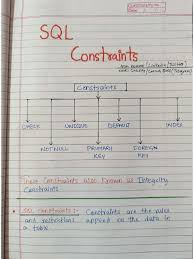 SQL
Constraints
Constraints
CHECK UNIQUE DEFAULT INDEX
NOT NULL PRIMARY KEY FOREIGN KEY
These Constraints also Known as Integrity
Constraints
SQL Constraints :- Constraints are the rules
and restrictions applied on the data in
a table